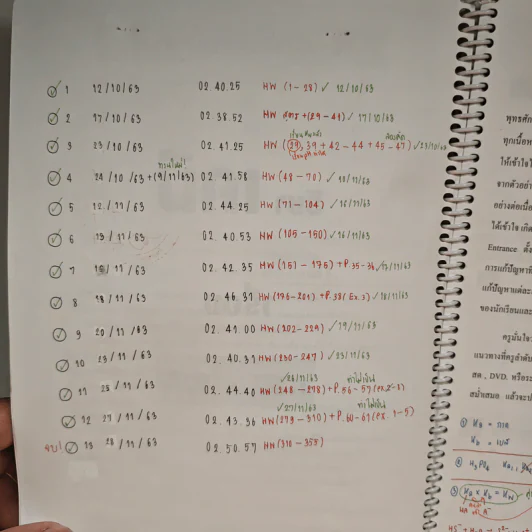 1 12/10/63 02.40.25 HW (1-28) ✓ 12/10/63
2 17/10/63 02.38.52 HW สูตร+(29-41) ✓ 17/10/63
3 23/10/63 02.41.25 HW (39), 39+42-44+45-47) ✓ 23/10/63
ทวนใหม่!
4 24/10/63+(9/11/63) 02.41.58 HW (48-70) ✓ 10/11/63
5 12/11/63 02.44.25 HW (71-104) ✓ 12/11/63
6 13/11/63 02.40.53 HW (105-150) ✓ 16/11/63
7 16/11/63 02.42.35 HW (151-175)+P.35-36 ✓ 17/11/63
8 18/11/63 02.46.31 HW (176-201)+P.38(Ex.3) ✓ 18/11/63
9 20/11/63 02.41.00 HW (202-229) ✓ 19/11/63
10 23/11/63 02.40.31 HW (230-247) ✓ 23/11/63
✓ 26/11/63 ทำไม่ทัน
11 25/11/63 02.44.40 HW (248-278)+P.56-57
✓ 27/11/63 ทำไม่ทัน
12 27/11/63 02.43.36 HW (279-310)+P.60-61 (Ex.1-5)
จบ! 13 28/11/63 02.50.57 HW (310-355)
ทุกเนื้อห
ให้เข้าใจใ
จากตัวอย่
อย่างต่อเนื่อ
ได้เข้าใจ เกิด
Entrance ตั้ง
การแก้ปัญหาที
แก้ปัญหาแต่ละ
ของนักเรียนและ
ครูมั่นใจว
แนวทางที่ครูลำดับ
สด , DVD. หรือร
สม่ำเสมอ แล้วจะป